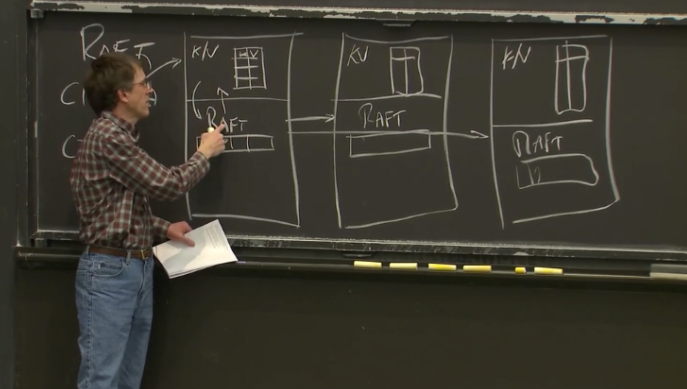 RAFT
KV
RAFT
KV
RAFT
KV
RAFT